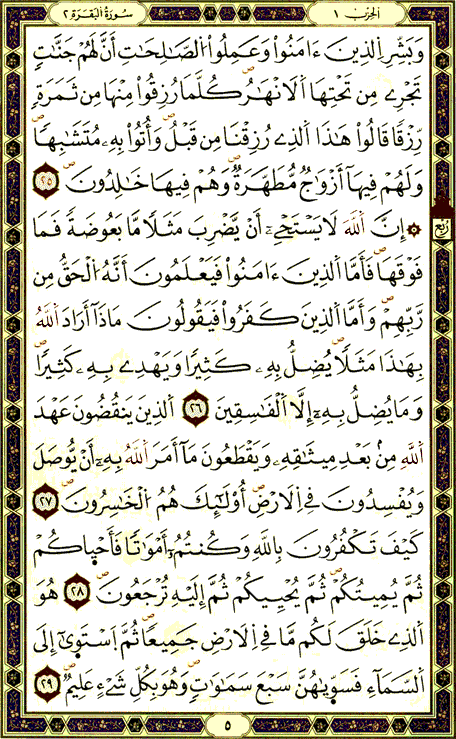 الحزب ١
سورة البقرة ٢
وَبَشِّرِ اِ۬لذِينَ ءَامَنُوا۟ وَعَمِلُوا۟ اُ۬لصَّٰلِحَٰتِ أَنَّ لَهُمْ جَنَّٰتٖ
تَجْرِے مِن تَحْتِهَا اَ۬لَانْهَٰرُ ص كُلَّمَا رُزِقُوا۟ مِنْهَا مِن ثَمَرَةٖ
رِّزْقاٗ قَالُوا۟ هَٰذَا اَ۬لذِے رُزِقْنَا مِن قَبْلُ ص وَأُتُوا۟ بِهِۦ مُتَشَٰبِهاٗ ص
وَلَهُمْ فِيهَآ أَزْوَٰجٞ مُّطَهَّرَةٞ ص وَهُمْ فِيهَا خَٰلِدُونَ ص ٢٥
۞ إِنَّ اَ۬للَّهَ لَا يَسْتَحْيِۦٓ أَنْ يَّضْرِبَ مَثَلاٗ مَّا بَعُوضَةٗ فَمَا
ربع
فَوْقَهَا ص فَأَمَّا اَ۬لذِينَ ءَامَنُوا۟ فَيَعْلَمُونَ أَنَّهُ اُ۬لْحَقُّ مِن
رَّبِّهِمْ ص وَأَمَّا اَ۬لذِينَ كَفَرُوا۟ فَيَقُولُونَ مَاذَآ أَرَادَ اَ۬للَّهُ
بِهَٰذَا مَثَلاٗ ص يُضِلُّ بِهِۦ كَثِيراٗ وَيَهْدِے بِهِۦ كَثِيراٗ ص
وَمَا يُضِلُّ بِهِۦٓ إِلَّا اَ۬لْفَٰسِقِينَ ٢٦ اَ۬لذِينَ يَنقُضُونَ عَهْدَ
اَ۬للَّهِ مِنۢ بَعْدِ مِيثَٰقِهِۦ وَيَقْطَعُونَ مَآ أَمَرَ اَ۬للَّهُ بِهِۦٓ أَنْ يُّوصَلَ
وَيُفْسِدُونَ فِے اِ۬لَارْضِ ص أُوْلَٰٓئِكَ هُمُ اُ۬لْخَٰسِرُونَ ص ٢٧
كَيْفَ تَكْفُرُونَ بِاللَّهِ وَكُنتُمُۥٓ أَمْوَٰتاٗ فَأَحْيَٰكُمْ
ثُمَّ يُمِيتُكُمْ ص ثُمَّ يُحْيِيكُمْ ثُمَّ إِلَيْهِ تُرْجَعُونَ ص ٢٨ هُوَ
اَ۬لذِے خَلَقَ لَكُم مَّا فِے اِ۬لَارْضِ جَمِيعاٗ ص ثُمَّ اَ۪سْتَوَىٰٓ إِلَى
اَ۬لسَّمَآءِ فَسَوَّىٰهُنَّ سَبْعَ سَمَٰوَٰتٖ ص وَهُوَ بِكُلِّ شَےْءٍ عَلِيمٞ ص ٢٩
٥